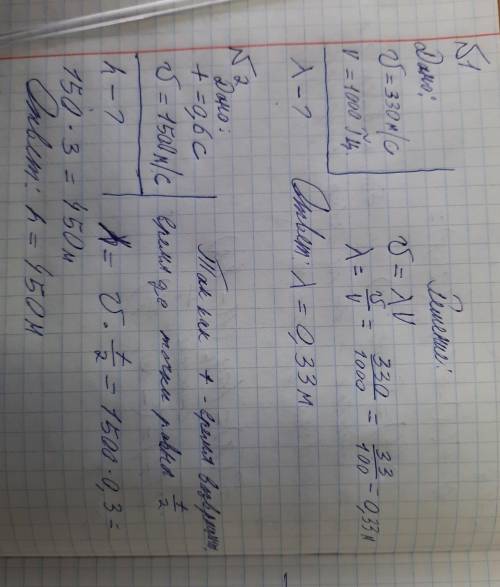 №1
Дано:
υ = 330 м/с
ν = 1000 Гц.
λ - ?
Решение:
υ = λν
λ = υ/ν = 330/1000 = 33/100 = 0,33 м
Ответ: λ = 0,33 м
№2
Дано:
t = 0,6 с
υ = 1500 м/с
h - ?
Так как t - время возвращения,
время до точки равна t/2
h = υ · t/2 = 1500 · 0,3 =
150 · 3 = 450 м
Ответ: h = 450 м